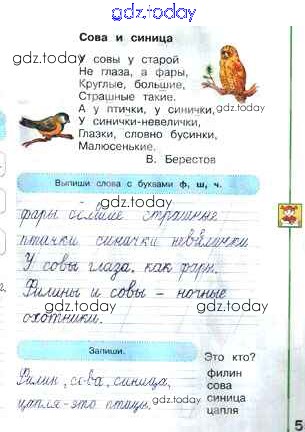 gdz.today
Сова и синица
У совы у старой
gdz.today
Не глаза, а фары,
Круглые, большие,
Страшные такие.
gdz.today
А у птички, у синички,
У синички-невелички,
gdz.today
Глазки, словно бусинки,
Малюсенькие.
В. Берестов
Выпиши слова с буквами ф, ш, ч.
gdz.today
фары большие страшные
птички синички невелички
У совы глаза, как фары.
gdz.today
Филины и совы - ночные
gdz.today
охотники.
gdz.today
Запиши.
Это кто?
Филин, сова, синица,
филин
сова
цапля-это птицы.
синица
цапля
gdz.today
5